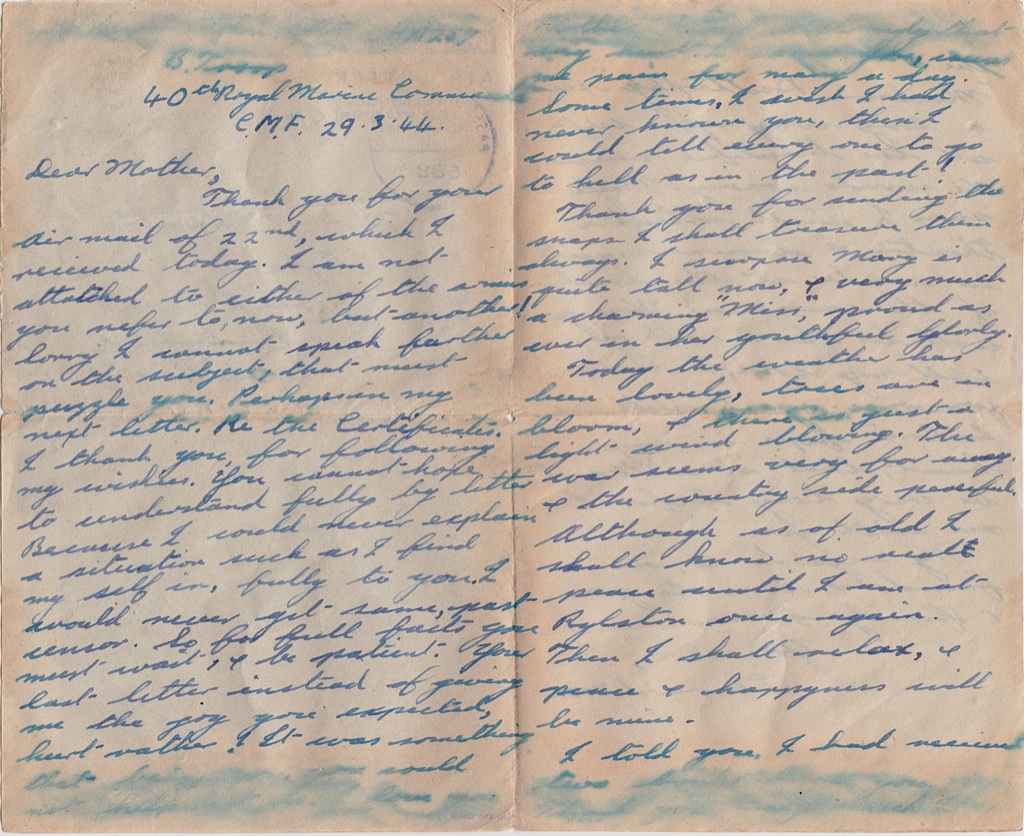 40th Royal Marine
C.M.F. 29.3.44.
Dear Mother,
Thank you for your
Air mail of 22nd, which I
recieved today. I am not
attatched to either of the armies
you refer to, now, but another!
Sorry I cannot speak further
on the subject, that must
puzzle you. Perhaps in my
next letter. Re the Certificates.
I thank you, for following
my wishes. You cannot hope
to understand fully by letter
Because I could never explain
a situation such as I find
my self in, fully to you. I
would never get same, past
censor. So for full facts you
must wait, & be patient. Your
last letter instead of giving
me the joy you expected,
hurt rather! It was something
that could
love you
my
me pain for many a day.
Some times, I wish I had
never known you, then I
would tell every one to go
to hell as in the past!
Thank you for sending the
snaps I shall treasure them
always. I suppose Mary is
quite tall now, & very much
a charming "Miss", proud as
ever in her youthful Glorly.
Today the weather has
been lovely, trees are in
bloom, & there is just a
light wind blowing. The
war seems very far away,
& the country side peaceful.
Although as of old I
shall know no real
peace until I am at
Rylston once again.
Then I shall relax, &
peace & happyness will
be mine.
I told you I had recieved
two